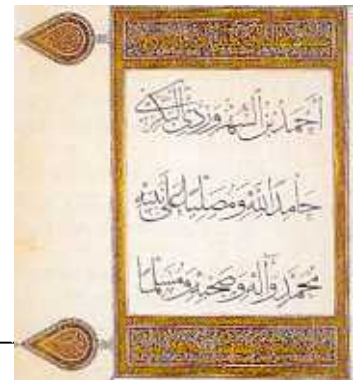 أحمد بن السهروردي البكري
حامدا لله ومصليا على نبيه
محمد وآله وصحبه ومسلما